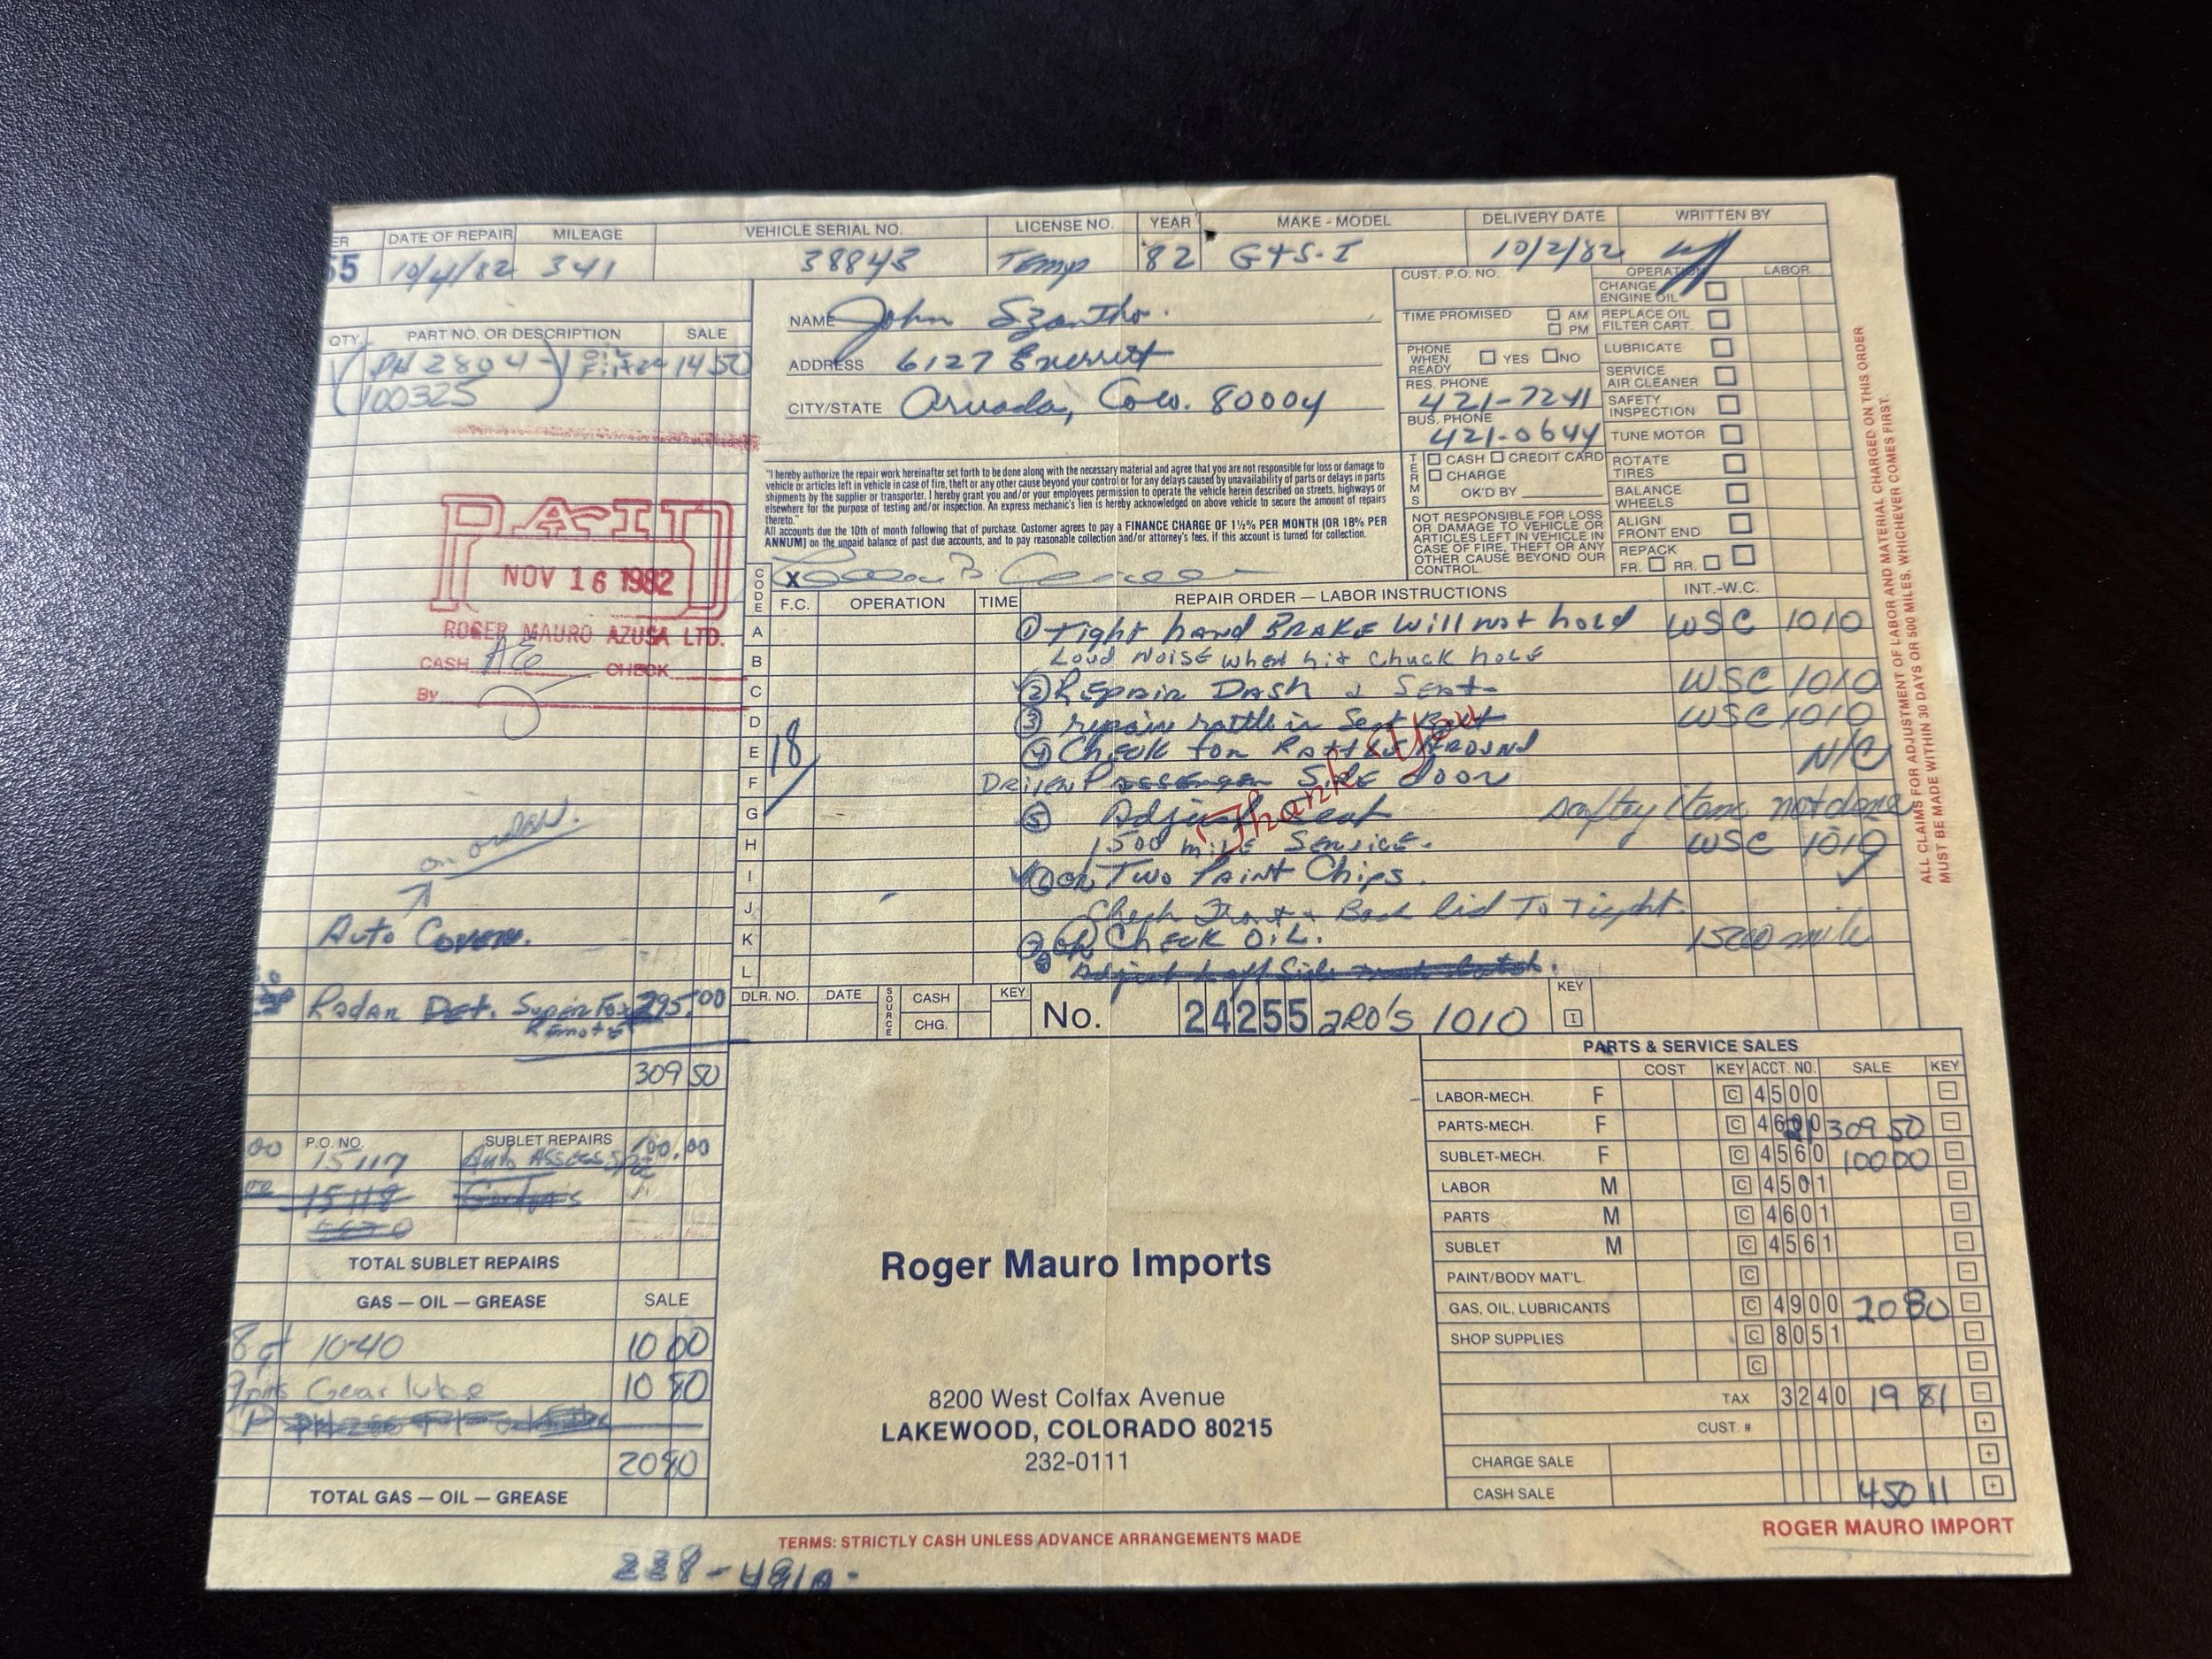 ER DATE OF REPAIR MILEAGE VEHICLE SERIAL NO. LICENSE NO. YEAR MAKE - MODEL DELIVERY DATE WRITTEN BY
55 10/4/82 341 38843 Temp '82 GTS-I 10/2/82
QTY. PART NO. OR DESCRIPTION SALE
(PH 2804-) Oil Filter 14 50
100325
PAID
NOV 16 1982
ROGER MAURO AZUSA LTD.
CASH CHECK
By
on order.
Auto Cover.
Radar Det. Super Fox 295.00
Remote
309 50
00 P.O. NO. SUBLET REPAIRS
15117 100.00
15118
TOTAL SUBLET REPAIRS
GAS — OIL — GREASE SALE
8 qt 10-40 10 00
9 pints Gear lube 10 80
20 80
TOTAL GAS — OIL — GREASE
NAME John Szantho.
ADDRESS 6127 Everett
CITY/STATE Arvada, Colo. 80004
"I hereby authorize the repair work hereinafter set forth to be done along with the necessary material and agree that you are not responsible for loss or damage to
vehicle or articles left in vehicle in case of fire, theft or any other cause beyond your control or for any delays caused by unavailability of parts or delays in parts
shipments by the supplier or transporter. I hereby grant you and/or your employees permission to operate the vehicle herein described on streets, highways or
elsewhere for the purpose of testing and/or inspection. An express mechanic's lien is hereby acknowledged on above vehicle to secure the amount of repairs
thereto."
All accounts due the 10th of month following that of purchase. Customer agrees to pay a FINANCE CHARGE OF 1½% PER MONTH (OR 18% PER
ANNUM) on the unpaid balance of past due accounts, and to pay reasonable collection and/or attorney's fees, if this account is turned for collection.
X
CUST. P.O. NO.
TIME PROMISED AM
PM
PHONE WHEN READY YES NO
RES. PHONE
421-7241
BUS. PHONE
421-0644
TERMS CASH CREDIT CARD
CHARGE
OK'D BY
NOT RESPONSIBLE FOR LOSS
OR DAMAGE TO VEHICLE OR
ARTICLES LEFT IN VEHICLE IN
CASE OF FIRE, THEFT OR ANY
OTHER CAUSE BEYOND OUR
CONTROL.
OPERATION LABOR
CHANGE
ENGINE OIL
REPLACE OIL
FILTER CART.
LUBRICATE
SERVICE
AIR CLEANER
SAFETY
INSPECTION
TUNE MOTOR
ROTATE
TIRES
BALANCE
WHEELS
ALIGN
FRONT END
REPACK
FR. RR.
CODE F.C. OPERATION TIME REPAIR ORDER — LABOR INSTRUCTIONS INT.-W.C.
A ① Tight hand BRAKE will not hold WSC 1010
B Loud NOISE when hit chuck hole
C ② Repair Dash & Seat WSC 1010
D ③ repair rattle in Seat Belt WSC 1010
E 18 ④ Check for Rattle AROUND N/C
F Driver Passenger Side door
G ⑤ Adjust Seat saftey item not done
H 1500 mile Service. WSC 1010
I ⑥ ok Two Paint Chips.
J Chech Front + Back lid To Tight.
K ⑦ ok Check OIL. 1500 mile
L ⑧ Adjust Left Side
Thank You
DLR. NO. DATE SOURCE CASH KEY No. 24255 2RO's 1010 KEY
CHG. I
Roger Mauro Imports
8200 West Colfax Avenue
LAKEWOOD, COLORADO 80215
232-0111
PARTS & SERVICE SALES
COST KEY ACCT. NO. SALE KEY
LABOR-MECH. F C 4500 −
PARTS-MECH. F C 309 50 −
SUBLET-MECH. F C 4560 100 00 −
LABOR M C 4501 −
PARTS M C 4601 −
SUBLET M C 4561 −
PAINT/BODY MAT'L. C −
GAS, OIL, LUBRICANTS C 4900 20 80 −
SHOP SUPPLIES C 8051 −
C −
TAX 3240 19 81 −
CUST. # +
CHARGE SALE +
CASH SALE 450 11 +
TERMS: STRICTLY CASH UNLESS ADVANCE ARRANGEMENTS MADE
ROGER MAURO IMPORT
ALL CLAIMS FOR ADJUSTMENT OF LABOR AND MATERIAL CHARGED ON THIS ORDER
MUST BE MADE WITHIN 30 DAYS OR 500 MILES, WHICHEVER COMES FIRST.